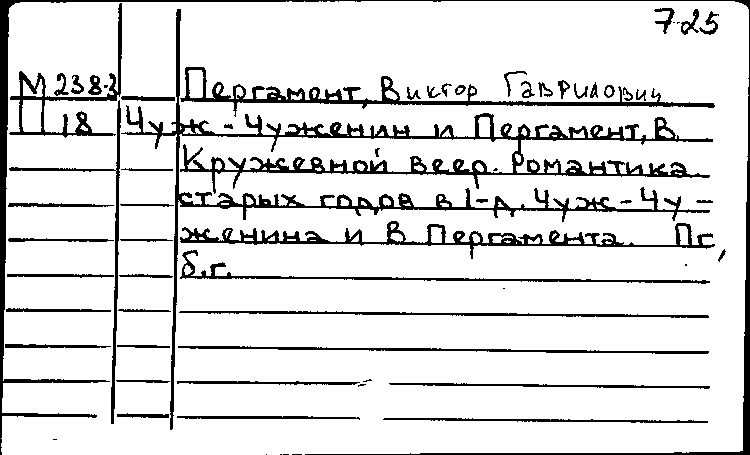 7-25
М 2383 Пергамент, Виктор Гаврилович
18 Чуж-Чуженин и Пергамент, В.
Кружевной веер. Романтика
старых годов в 1-д. Чуж-Чу-
женина и В. Пергамента. Пг,
б.г.